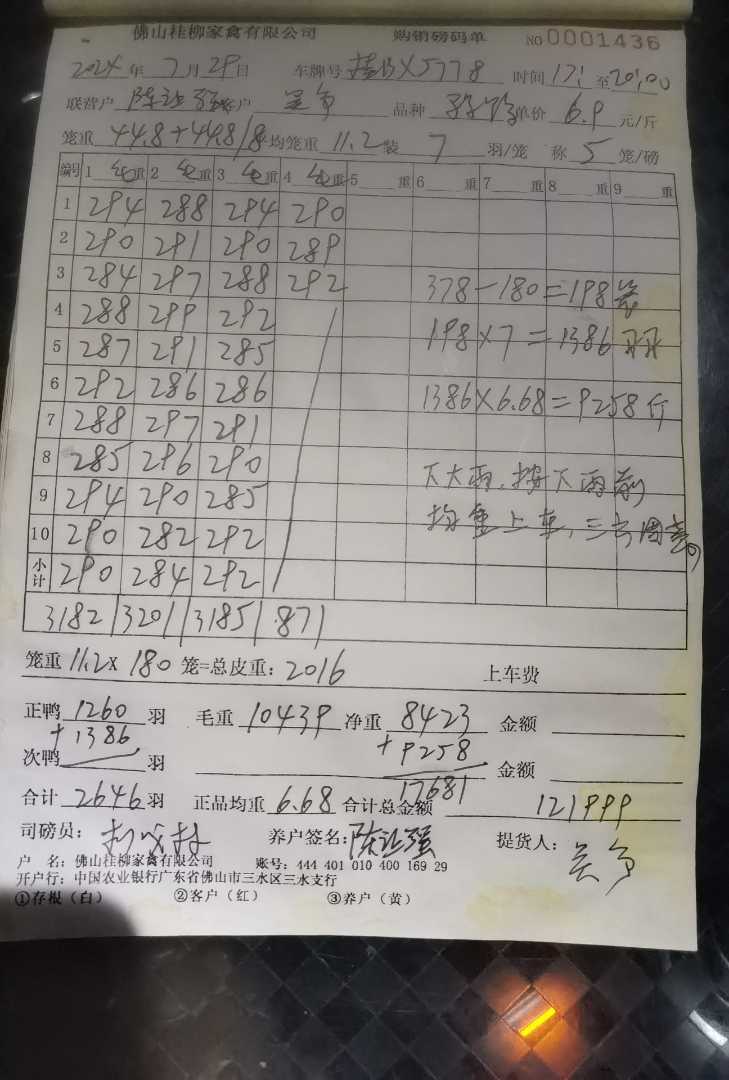 佛山桂柳家禽有限公司 购销磅码单 NO 0001436
2024 年 7 月 29 日 车牌号 X5778 时间 17: 至 20:00
联营户 陈 强 客户 品种 单价 6.9 元/斤
笼重 44.8+44.8/8 均笼重 11.2 装 7 羽/笼 称 5 笼/磅
编号 1 毛重 2 毛重 3 毛重 4 毛重 5 重 6 重 7 重 8 重 9 重
1 294 288 294 290
2 290 291 290 289
3 284 297 288 292 378-180=198笼
4 288 299 292
5 287 291 285 198×7=1386羽
6 292 286 286 1386×6.68=9258斤
7 288 297 291
8 285 296 290 下大雨,按下雨前
9 294 290 285 均重上车,三方同意。
10 290 282 292
小计 290 284 292
3182 3201 3185 871
笼重 11.2× 180 笼=总皮重: 2016 上车费
正鸭 1260 羽 毛重 10439 净重 8423 金额
+1386 +9258
次鸭 羽 金额
17681
合计 2646 羽 正品均重 6.68 合计总金额 121999
司磅员: 养户签名: 陈 强 提货人:
户 名: 佛山桂柳家禽有限公司 账号: 444 401 010 400 169 29
开户行: 中国农业银行广东省佛山市三水区三水支行
①存根(白) ②客户(红) ③养户(黄)